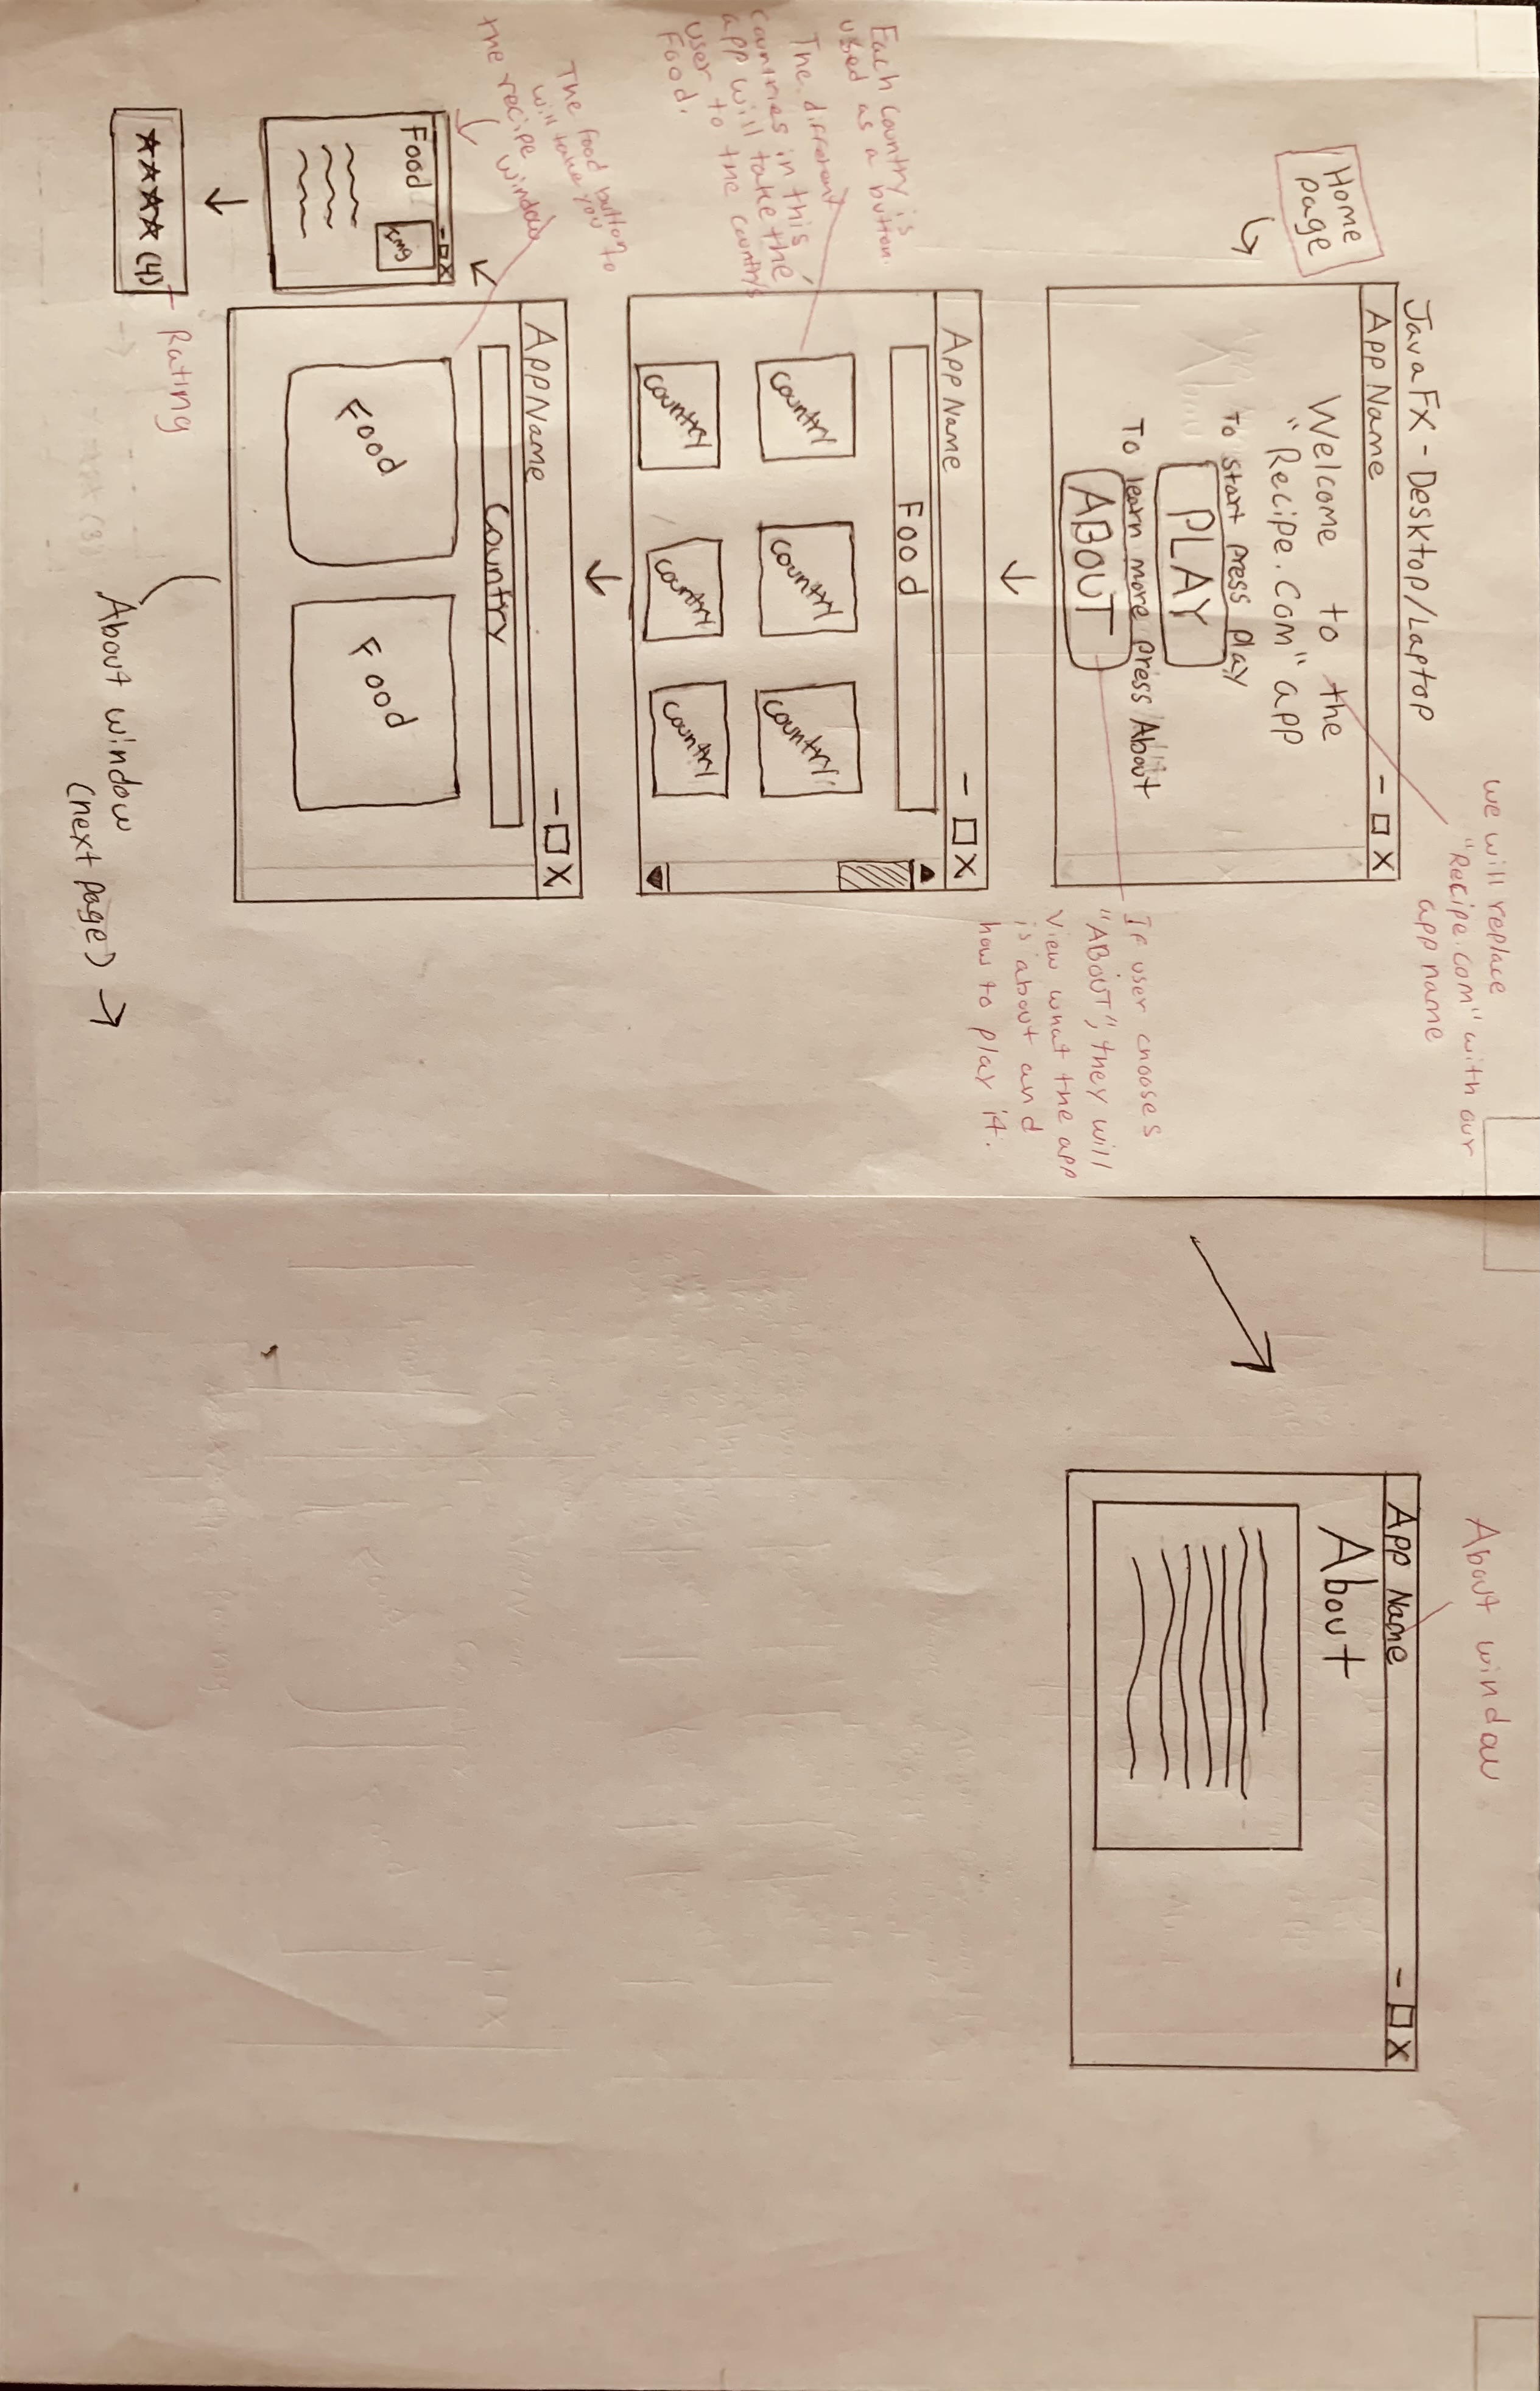 JavaFX - Desktop/Laptop
we will replace
"Recipe.com" with our
app name
Home
Page
App Name
- □ X
Welcome to the
"Recipe.com" app
To start press play
PLAY
To learn more press About
ABOUT
If user chooses
"ABOUT", they will
view what the app
is about and
how to play it.
Each country is
used as a button.
The different
countries in this
app will take the
user to the countrys
Food.
App Name
- □ X
Food
country
country
country
country
country
country
The food button to
will take you
the recipe window
App Name
- □ X
Country
Food
Food
- □ X
Food
img
★★★★ (4)
Rating
About window
(next page) →
About window
App Name
- □ X
About